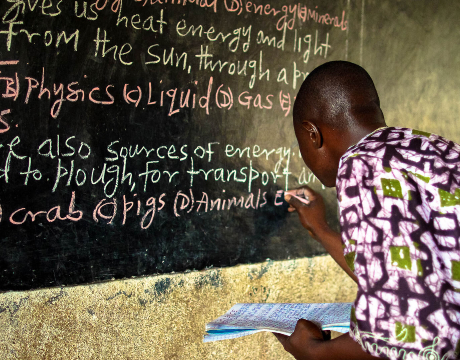 gives us heat energy and light (D) energy (E) minerals
from the sun, through a
(B) Physics (C) Liquid (D) Gas (E)
s.
also sources of energy.
d to plough, for transport an
) crab (C) pigs (D) Animals E